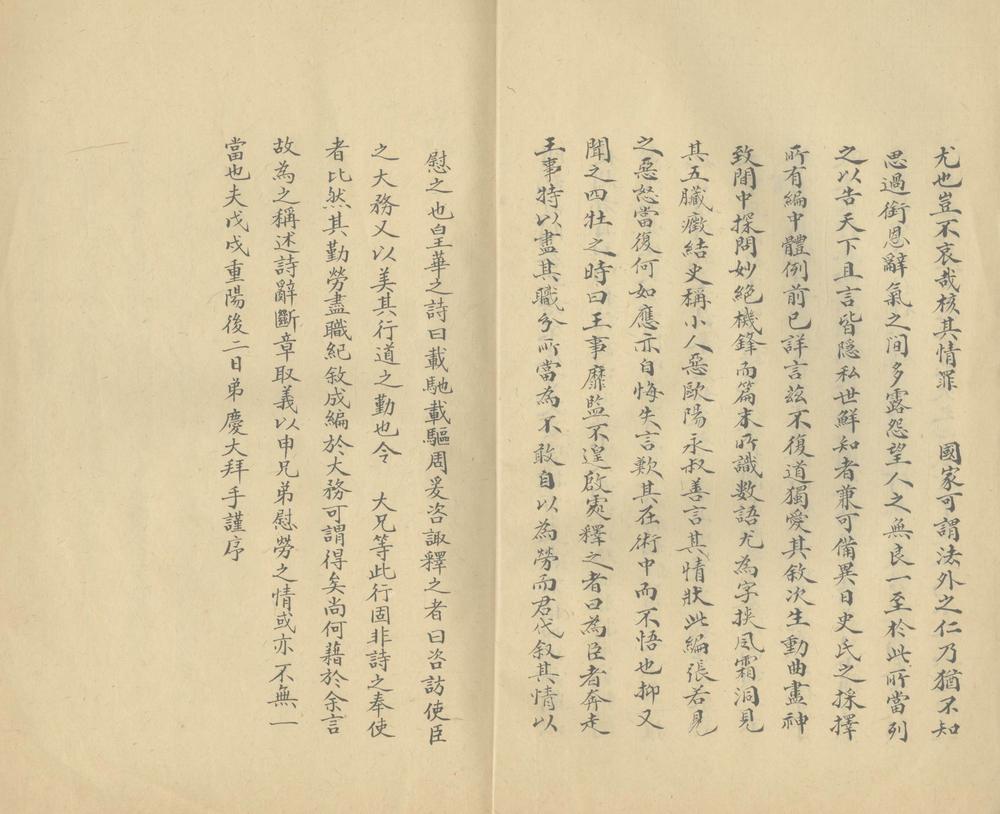 尤也豈不哀哉核其情罪　國家可謂法外之仁乃猶不知
思過銜恩辭氣之间多露怨望人之無良一至於此所當列
之以告天下且言皆隱私世鮮知者兼可備異日史氏之採擇
所有編中體例前已詳言茲不復道獨愛其敘次生動曲盡神
致間中探問妙絕機鋒而篇末所識數語尤為字挾風霜洞見
其五臟癥結史稱小人惡歐陽永叔善言其情狀此編張若見
之惡怒當復何如應亦自悔失言歎其在術中而不悟也抑又
聞之四牡之時曰王事靡監不遑啟處釋之者曰為臣者奔走
王事特以盡其職分所當為不敢自以為勞而君代叙其情以
慰之也皇華之詩曰載馳載驅周爰咨諏釋之者曰咨訪使臣
之大務又以美其行道之勤也今　大兄等此行固非詩之奉使
者比然其勤勞盡職紀敘成編於大務可謂得矣尚何藉於余言
故為之稱述詩辭斷章取義以申兄弟慰勞之情或亦不無一
當也夫戊戌重陽後二日弟慶大拜手謹序